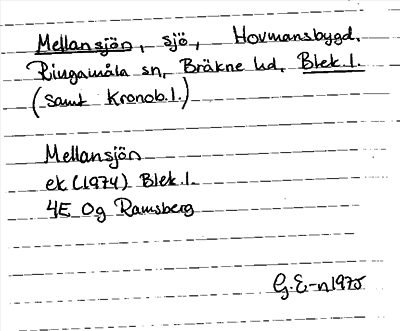 Mellansjön, sjö, Hovmansbygd.
Ringamåla sn, Bräkne hd, Blek. l.
(samt Kronob. l.)
Mellansjön
ek. (1974) Blek. l.
4E 0g Ramsberg
G. E-n 1975